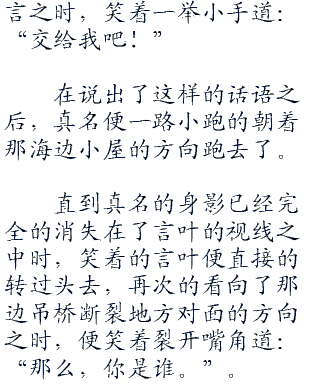 言之时，笑着一举小手道：
“交给我吧！”
在说出了这样的话语之
后，真名便一路小跑的朝着
那海边小屋的方向跑去了。
直到真名的身影已经完
全的消失在了言叶的视线之
中时，笑着的言叶便直接的
转过头去，再次的看向了那
边吊桥断裂地方对面的方向
之时，便笑着裂开嘴角道：
“那么，你是谁。”。